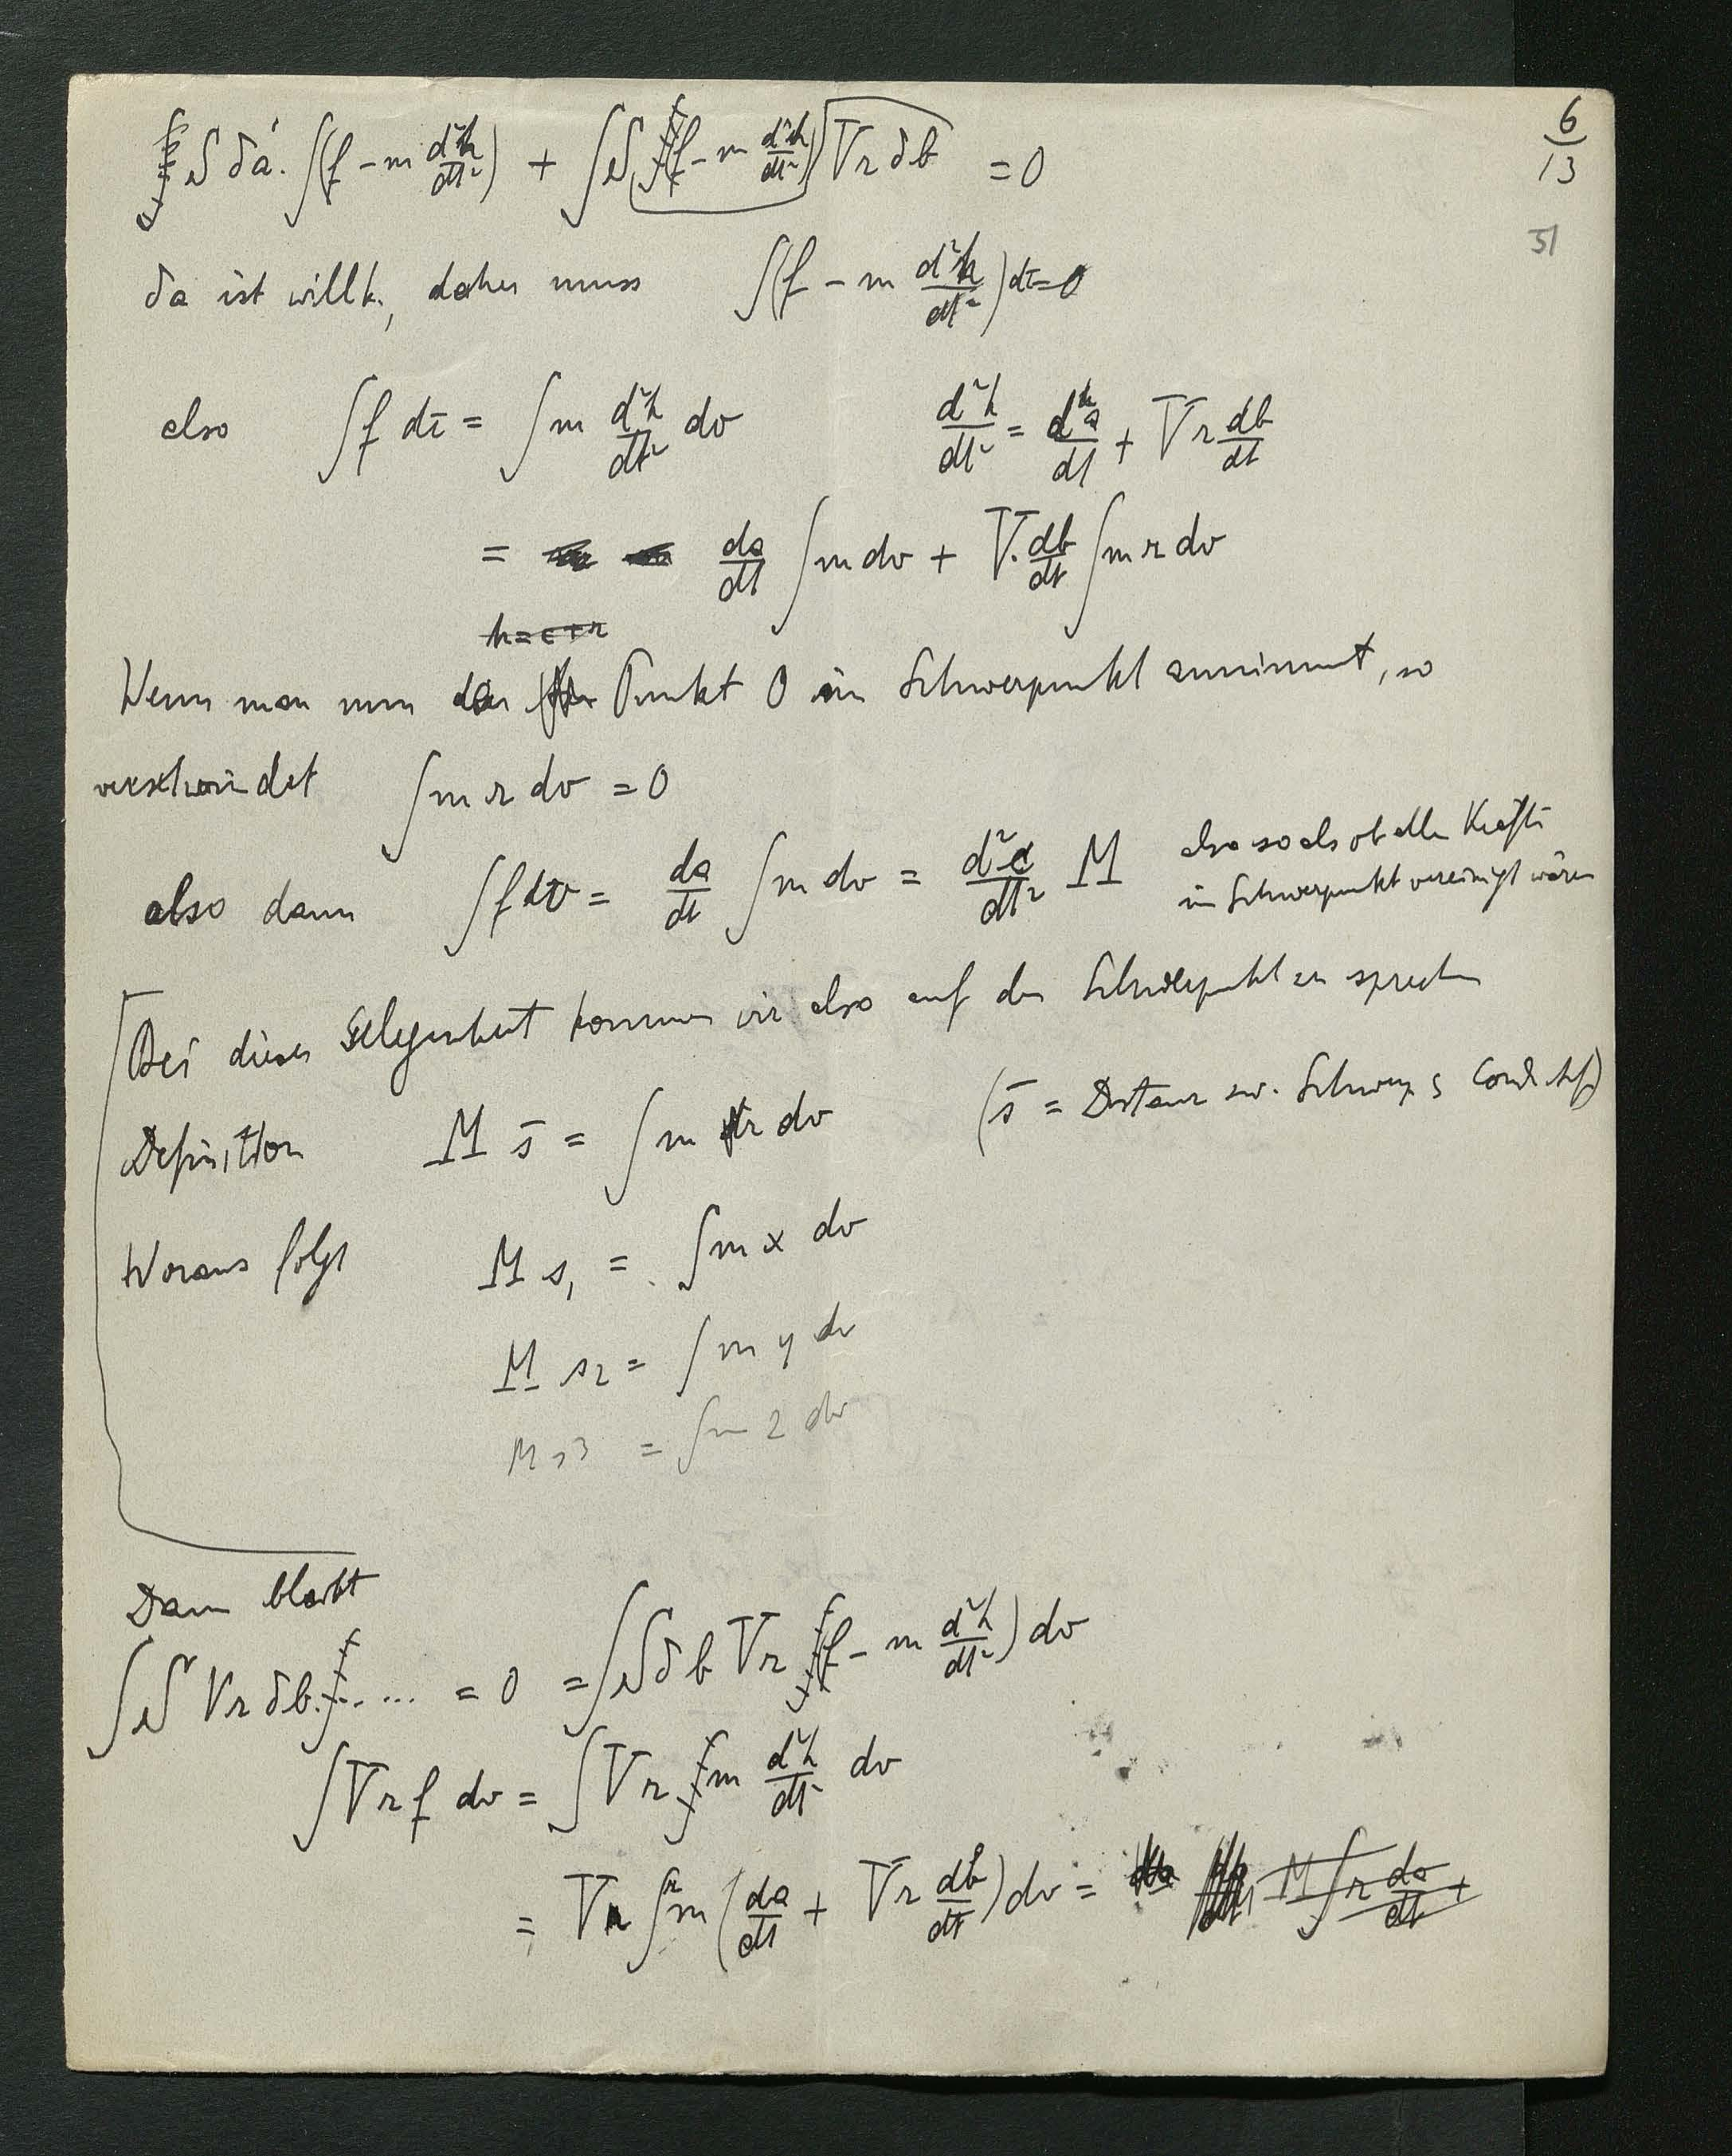 6/13
51
S δa · ∫(f − m d²h/dt²) + ∫S (f − m d²h/dt²) Vr δb = 0
δa ist willk., daher muss ∫(f − m d²h/dt²) dτ = 0
also ∫f dτ = ∫m d²h/dt² dv    d²h/dt² = da/dt + Vr db/dt
= da/dt ∫m dv + V·db/dt ∫m r dv
h = c + r
Wenn man nun den Punkt O im Schwerpunkt annimmt, so
verschwindet ∫m r dv = 0
also dann ∫f dv = da/dt ∫m dv = d²c/dt² M also so als ob alle Kräfte
im Schwerpunkt vereinigt wären
Bei dieser Gelegenheit kommen wir also auf den Schwerpunkt zu sprechen
Definition M s̄ = ∫m r dv (s̄ = Distanz zw. Schwerp
Woraus folgt M s₁ = ∫m x dv
M s₂ = ∫m y dv
M s3 = ∫m z dv
Dann bleibt
∫S Vr δb ..... = 0 = ∫S δb Vr (f − m d²h/dt²) dv
∫Vr f dv = ∫Vr m d²h/dt² dv
= V ∫r m (da/dt + Vr db/dt) dv = M ∫r da/dt +